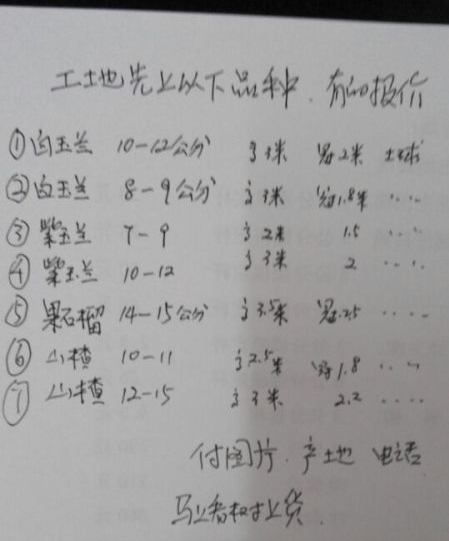 工土地先上以下品种.有的报价
①白玉兰 10-12公分 高3米 冠2米 土球
②白玉兰 8-9公分 高3米 冠1.8米 ....
③紫玉兰 7-9 高2米 1.5 ....
④紫玉兰 10-12 高3米 2 ....
⑤果石榴 14-15公分 高3.5米 冠2.5 ....
⑥山楂 10-11 高2.5米 冠1.8 ....
⑦山楂 12-15 高3米 2.2 ....
付图片.产地 电话
马上看树上货